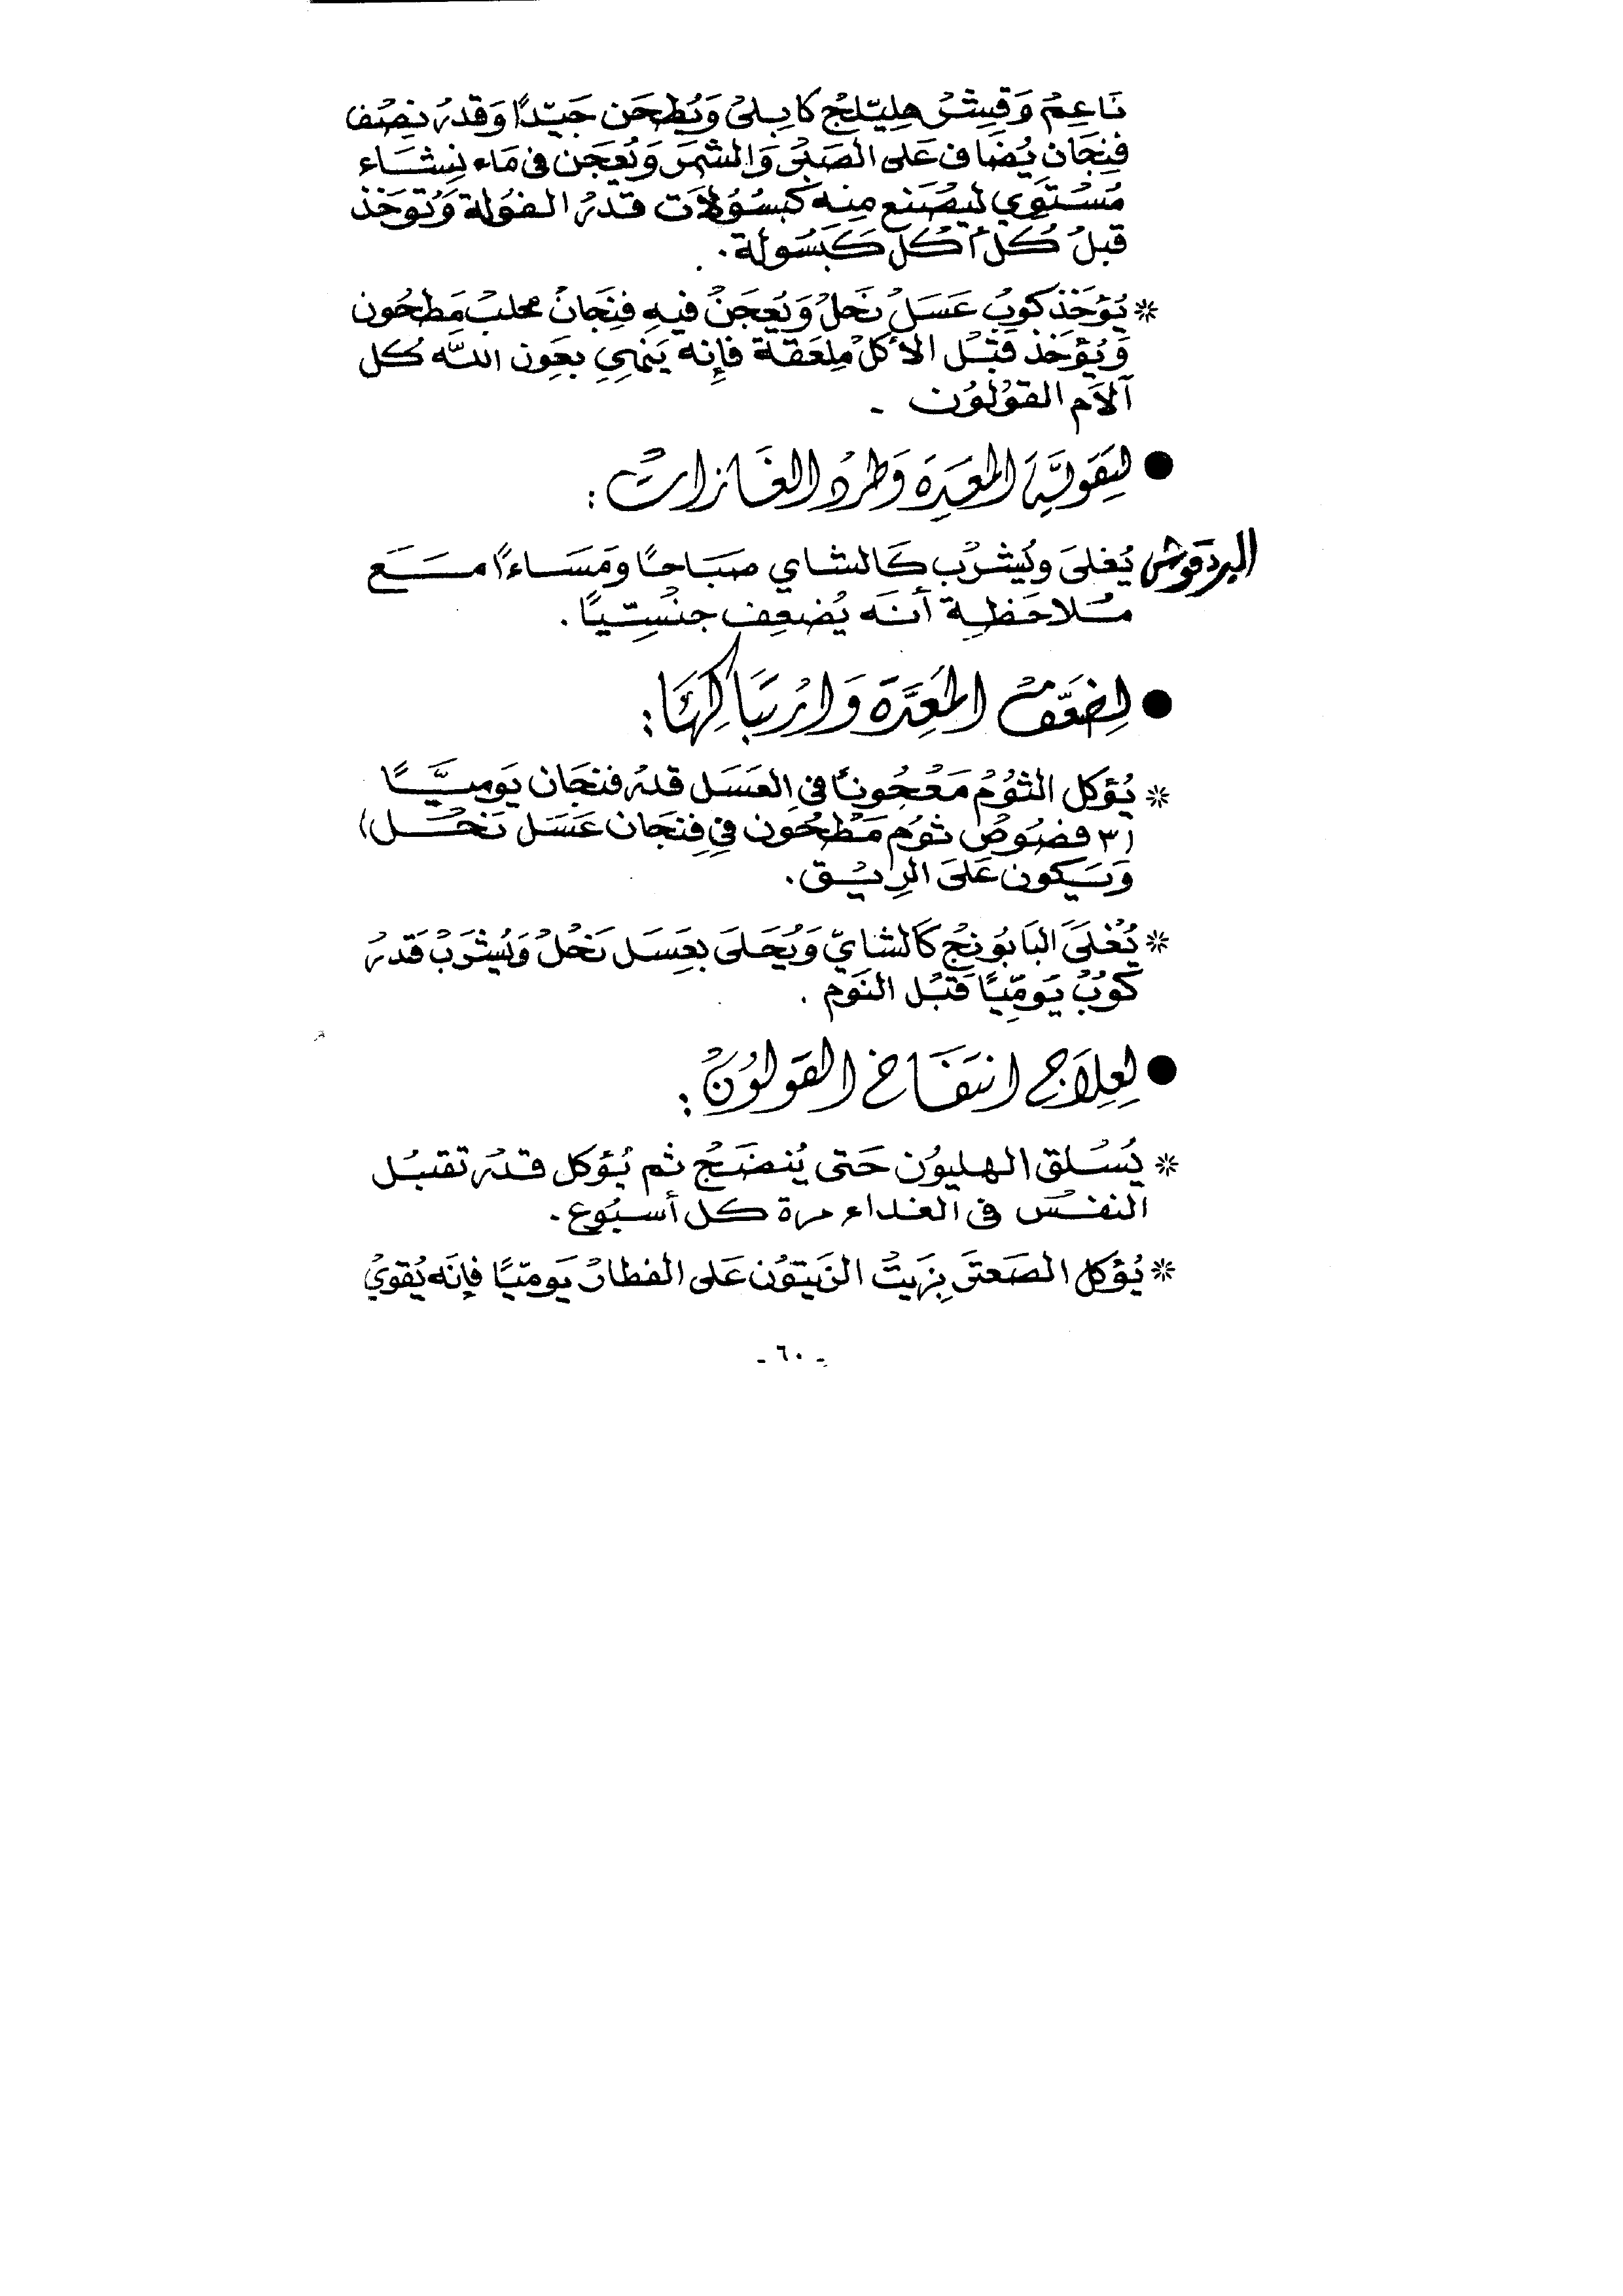 نَاعِمْ وَقِشْرْ هِليّلجْ كابِلىْ وَيُطحَن جَيّدًا وَقدرْ نِصْف
فِنجَانِ يُضَاف عَلى الصَبرْ وَالشمَرَ وَيُعجَن فى مَاء نِشَاء
مُسْتوَي ليُصْنَع مِنهَ كَبسُوُلاَت قدرْ الفوُلة وَتوُخَذ
قبلْ كُلْ أكْل كَبَسُولة.
* يُؤخَذ كوبْ عَسَلْ نَحلْ وَيُعجَنْ فيهِ فِنجَانْ محلبْ مَطحُون
وَيُؤخَذ قبْل الأكلْ مِلعَقة فإِنه يَنهِي بعَون اللّه كُل
آلاَم القوُلوُن -
● لتَقويَّة المَعِدَة وَطردْ الغَازات :
البردقوش يُغلىَ ويُشرْب كَالشاي صَبَاحًا وَمَسَاءًا مَع
مُلاحَظِة أنَه يُضعِف جنْسِيًا .
● لِضعّفْ المَعِدَة وَارْتبَاكِهَا :
* يُؤكل الثوُمْ مَعْجُونًا فى العَسَل قدر فنجَان يَوميًّا
(٣ فصُوصْ ثوُم مَطْحُون فِي فِنجَان عَسَل نَحْل)
وَيَكون عَلىَ الرِيْق.
* يُغْلىَ البَابُونجْ كَالشايّ وَيُحَلىَ بعَسَل نَحْلْ وَيُشرَبْ قَدرْ
كوُبْ يَومّيًا قَبْل النَوم .
● لعِلاَج انتفَاخ القولوُنْ :
* يُسْلق الهليوُن حَتى يُنضَجْ ثم يُؤكل قدر تقبُل
النفسْ فى الغداء مرة كل أسبُوع.
* يُؤكل الصَعتَر بِزَيتْ الزَيتوُن عَلى الفطارْ يَومّيًا فإنَه يُقويْ
- ٦٠ -